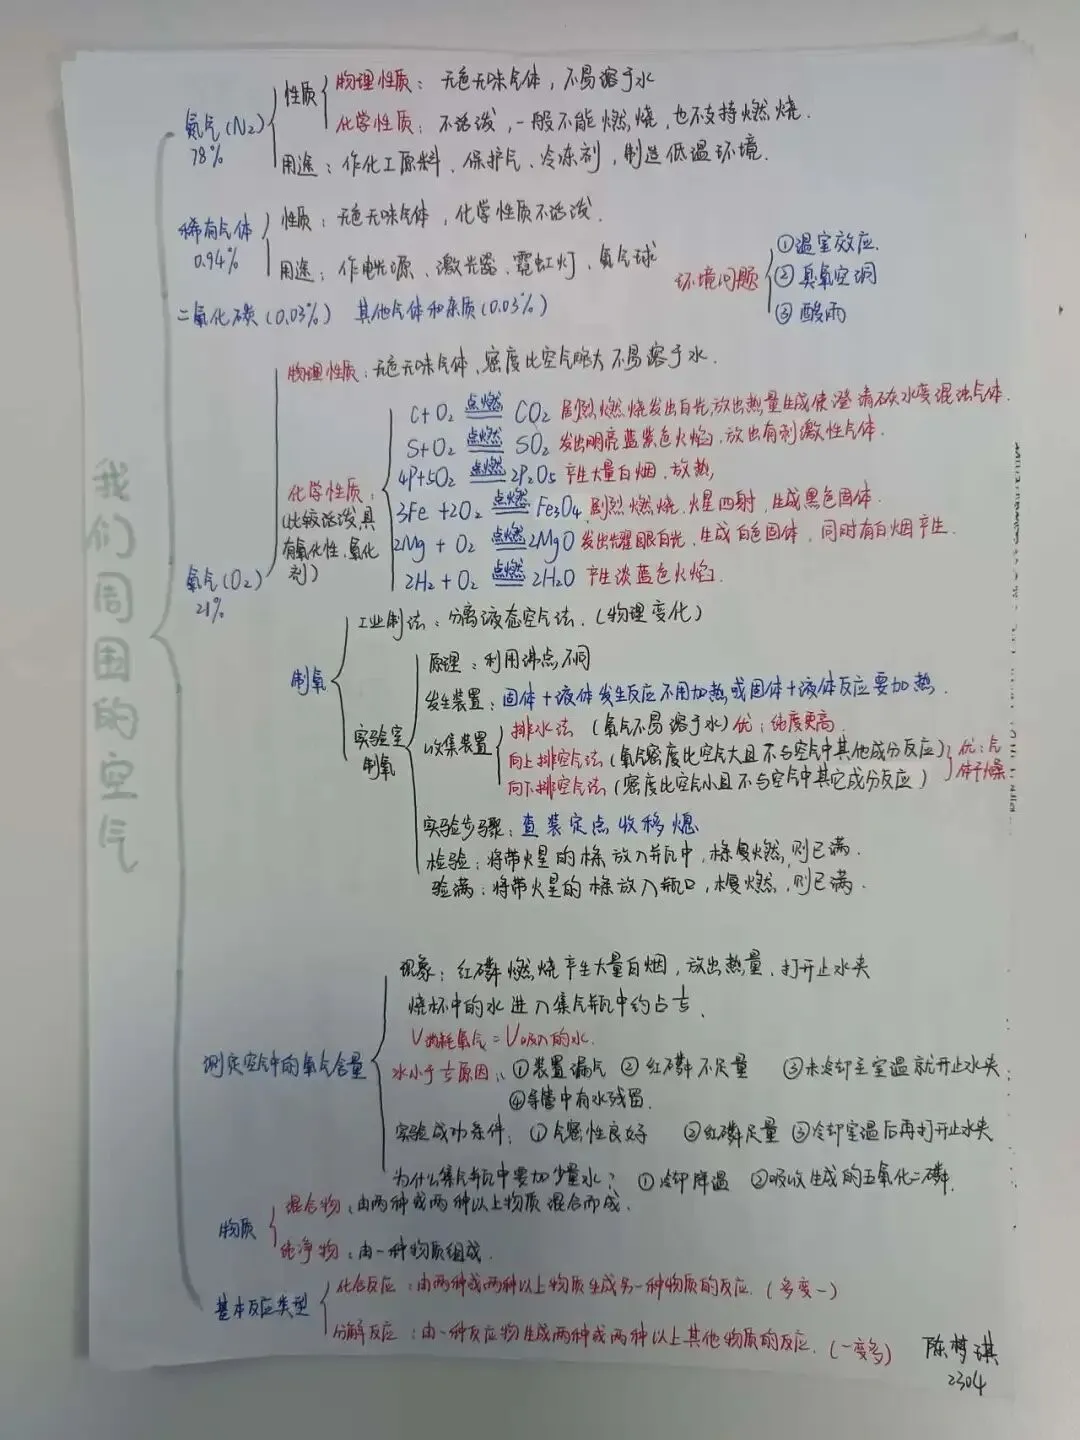 我们周围的空气
氮气(N₂)
78%
性质
物理性质：无色无味气体，不易溶于水
化学性质：不活泼，一般不能燃烧，也不支持燃烧.
用途：作化工原料、保护气、冷冻剂，制造低温环境.
稀有气体
0.94%
性质：无色无味气体，化学性质不活泼.
用途：作电光源、激光器、霓虹灯、氦气球
二氧化碳(0.03%) 其他气体和杂质(0.03%)
环境问题
①温室效应.
②臭氧空洞
③酸雨
氧气(O₂)
21%
物理性质：无色无味气体、密度比空气略大 不易溶于水.
化学性质：
(比较活泼,具
有氧化性、氧化
剂)
C+O₂ 点燃 CO₂ 剧烈燃烧发出白光,放出热量生成使澄清石灰水变混浊气体.
S+O₂ 点燃 SO₂ 发出明亮蓝紫色火焰、放出有刺激性气体.
4P+5O₂ 点燃 2P₂O₅ 产生大量白烟、放热,
3Fe+2O₂ 点燃 Fe₃O₄ 剧烈燃烧、火星四射，生成黑色固体.
2Mg+O₂ 点燃 2MgO 发出耀眼白光、生成白色固体，同时有白烟产生.
2H₂+O₂ 点燃 2H₂O 产生淡蓝色火焰.
制氧
工业制法：分离液态空气法.(物理变化)
实验室
制氧
原理：利用沸点不同
发生装置：固体+液体发生反应不用加热或固体+液体反应要加热.
收集装置
排水法 (氧气不易溶于水)优：纯度更高.
向上排空气法(氧气密度比空气大且不与空气中其他成分反应)
向下排空气法(密度比空气小且不与空气中其它成分反应)
优：气
体干燥
实验步骤：查装定点收移熄
检验：将带火星的木条放入瓶中,木条复燃,则已满.
验满：将带火星的木条放入瓶口,木复燃,则已满.
测定空气中的氧气含量
现象：红磷燃烧产生大量白烟，放出热量、打开止水夹
烧杯中的水进入集气瓶中约占⅕.
V消耗氧气=V吸入的水.
水小于⅕原因：①装置漏气 ②红磷不足量 ③未冷却至室温就开止水夹;
④导管中有水残留.
实验成功条件：①气密性良好 ②红磷足量 ③冷却室温后再打开止水夹
为什么集气瓶中要加少量水? ①冷却降温 ②吸收生成的五氧化二磷.
物质
混合物：由两种或两种以上物质混合而成.
纯净物：由一种物质组成.
基本反应类型
化合反应：由两种或两种以上物质生成另一种物质的反应.(多变一)
分解反应：由一种反应物生成两种或两种以上其他物质的反应.(一变多)
陈梦琪
2304